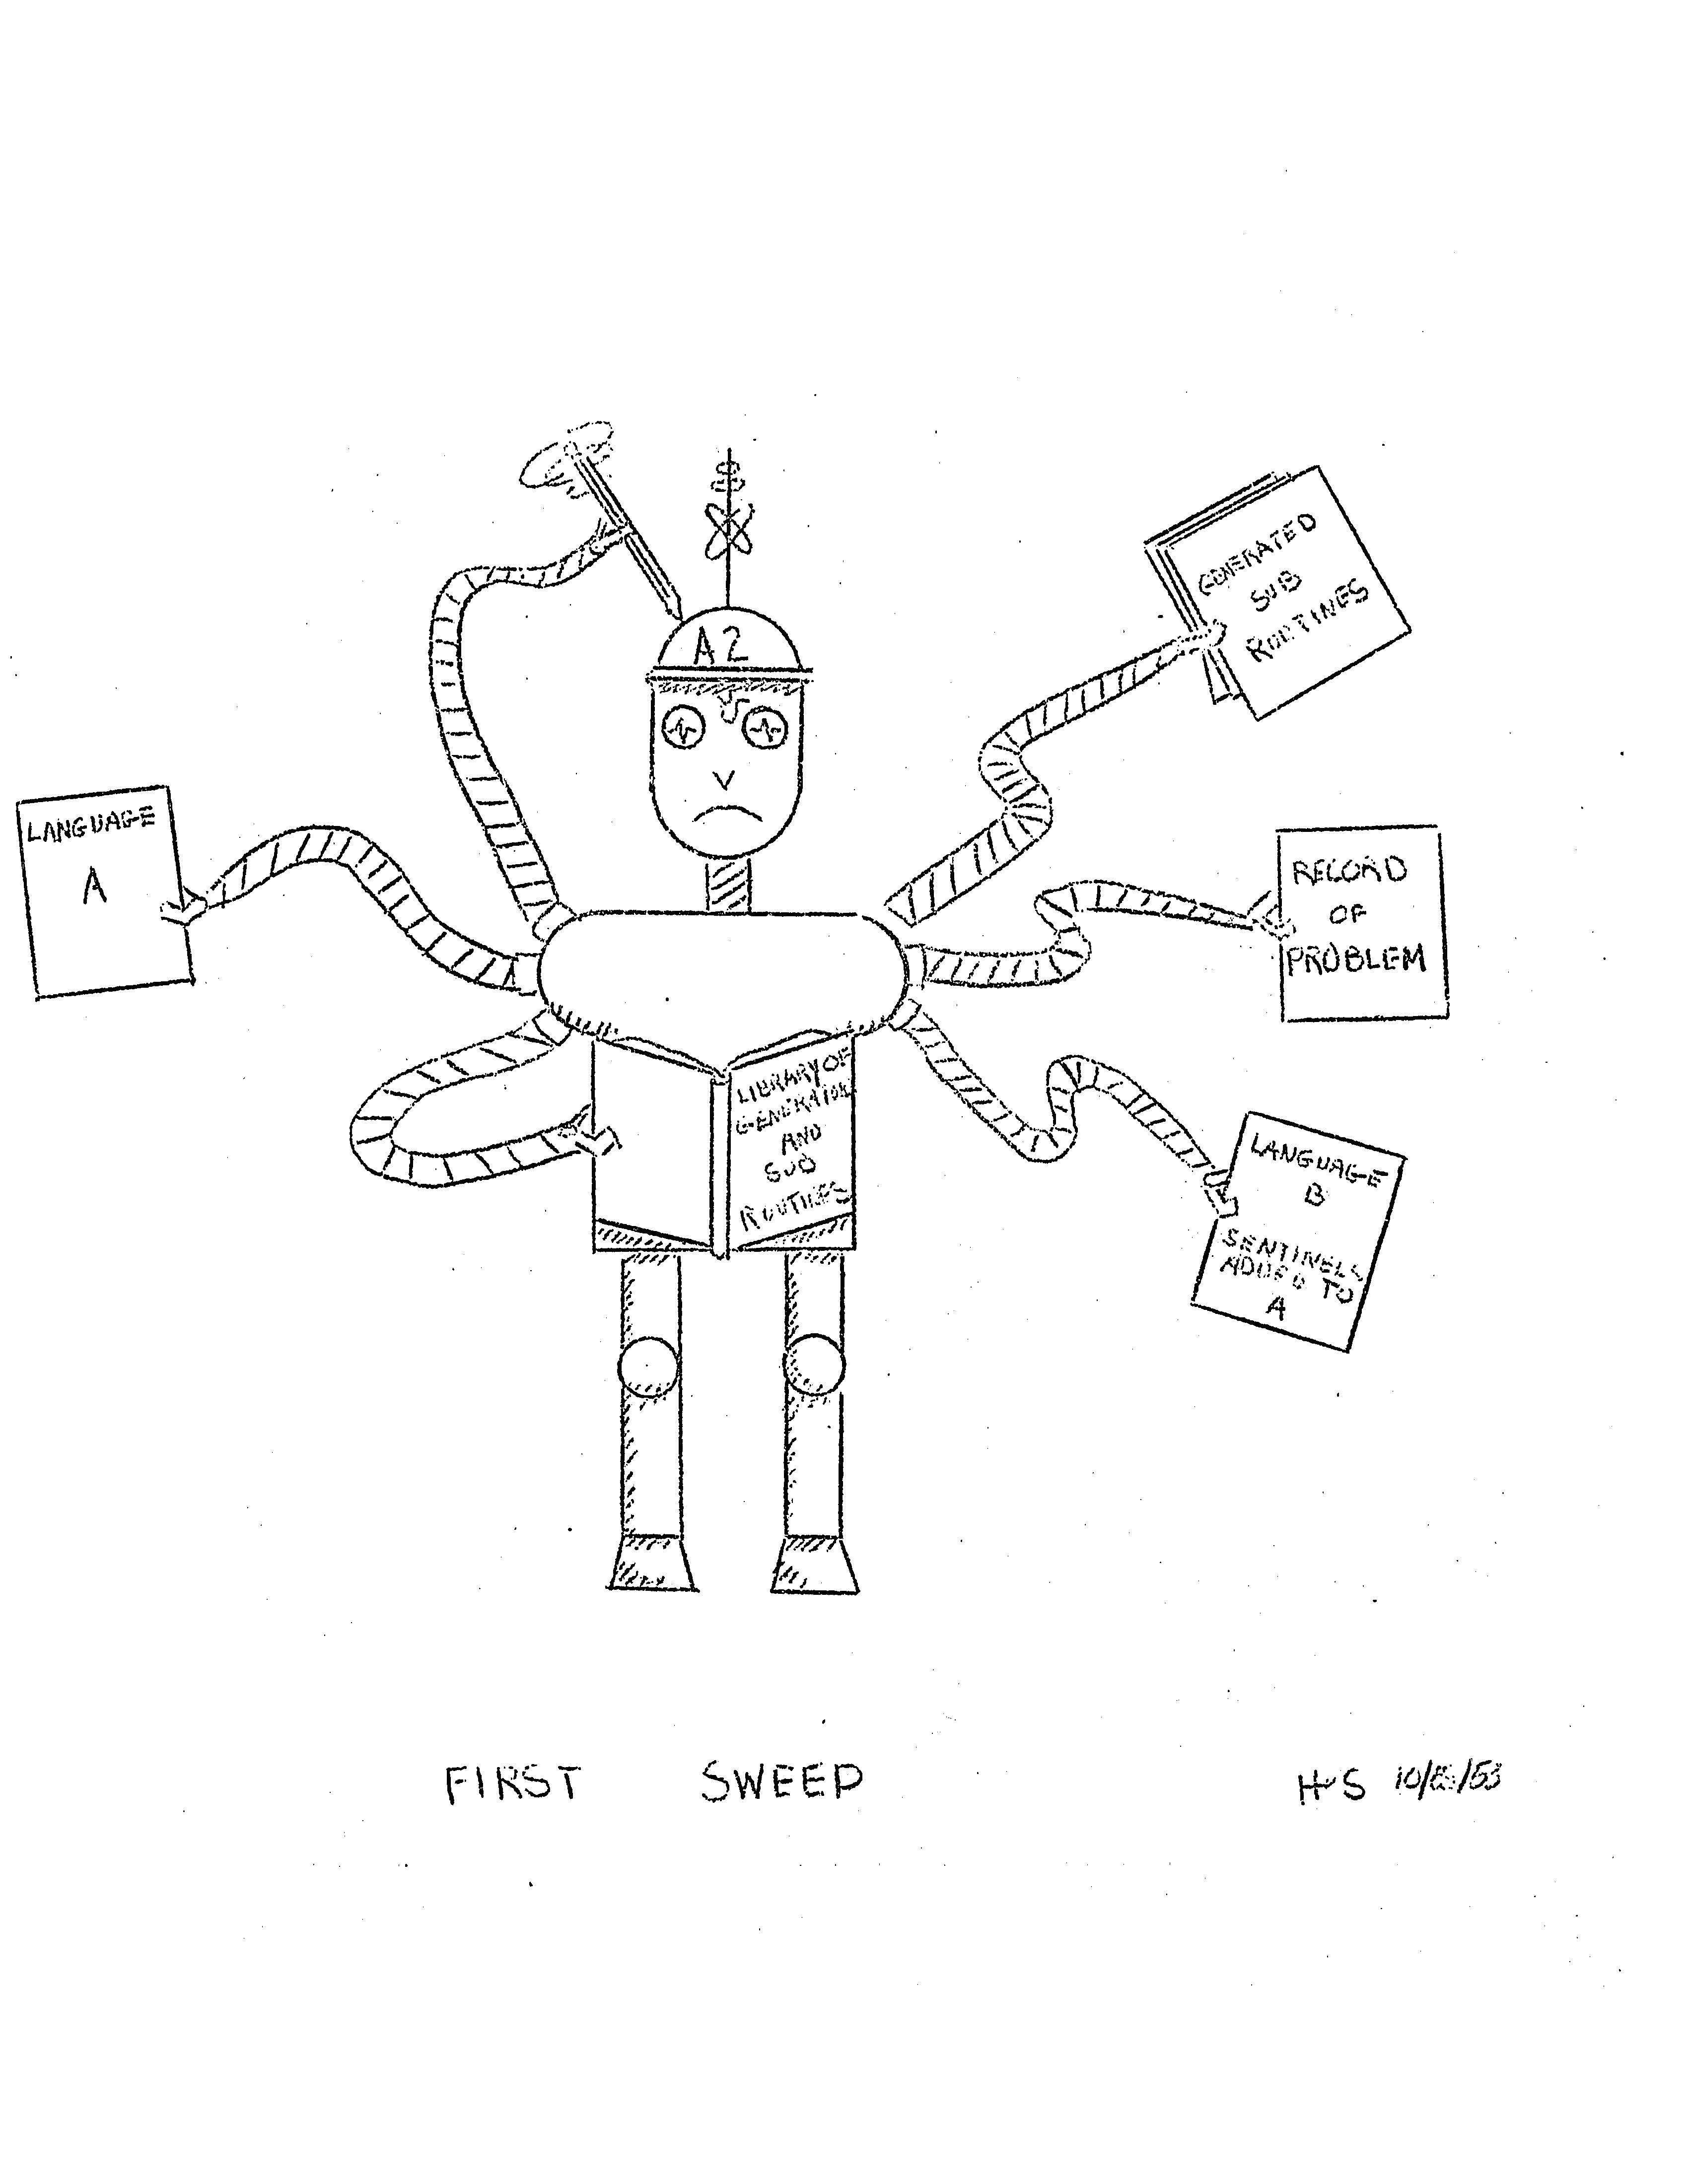 A2
GENERATED
SUB
ROUTINES
LANGUAGE
A
RECORD
OF
PROBLEM
LIBRARY OF
AND
SUB
ROUTINES
LANGUAGE
B
SENTINELS
ADDED TO
A
FIRST SWEEP
HS